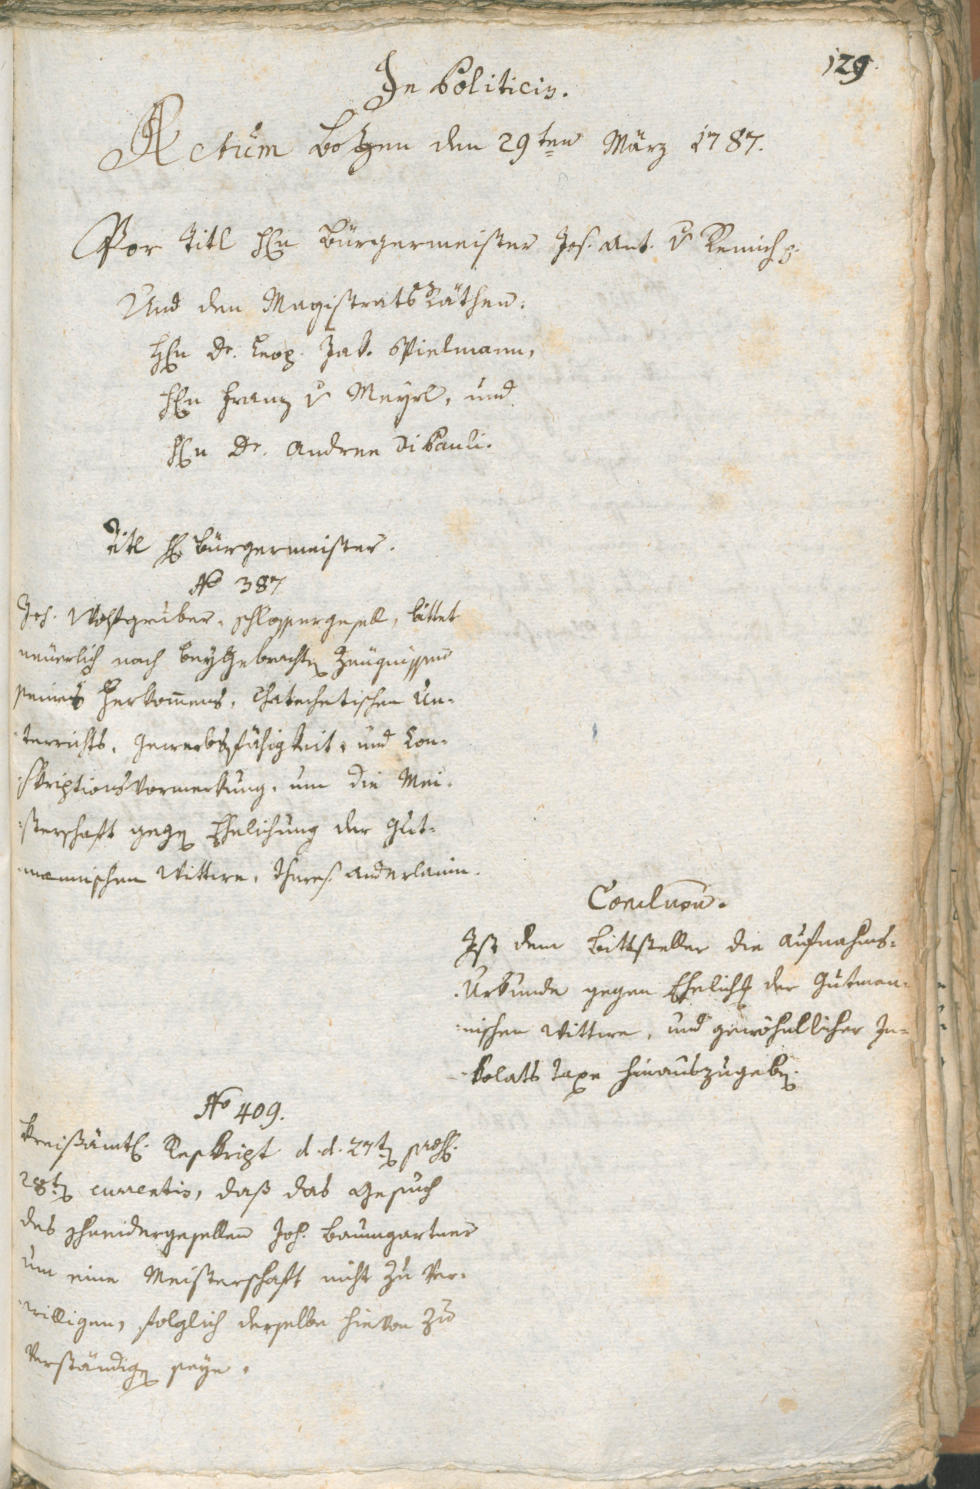 129.
In Politicis.
Actum Botzen den 29ten März 1787.
Vor Titl Hhn Bürgermeister Jos. Ant. v Remich p.
Und den Magistrats Räthen:
Hhn Dr. Leop. Jak. Spielmann,
Hhn Franz v Mayrl, und
Hhn Dr. Andree Di Pauli.
Titl H Bürgermeister.
No 387
Joh. Wohlgruber, schlossergesell, bittet
neuerlich nach beÿgebrachten Zeugnissen
seines Herkommens, Chatechetischen Un-
terrichts, Gewerbsfähigkeit, und Con-
skriptionsvormerkung, um die Mei-
sterschaft gegen Ehelichung der Gut-
mannischen Wittwe, Theres. Anderlanin.
Conclusum.
Ist dem Bittsteller die Aufnahms-
Urkunde gegen Ehelichg der Gutman-
nischen Wittwe, und gewöhnlicher In-
kolats Taxe hinauszugeben.
No 409.
Kreisämtl. Reskript d. d. 27ten
28ten currentis, daß das Gesuch
des schneidergesellen Joh. Baumgartner
um eine Meisterschaft nicht zu ver-
willigen, folglich derselbe hievon zu
verständigen seÿe.